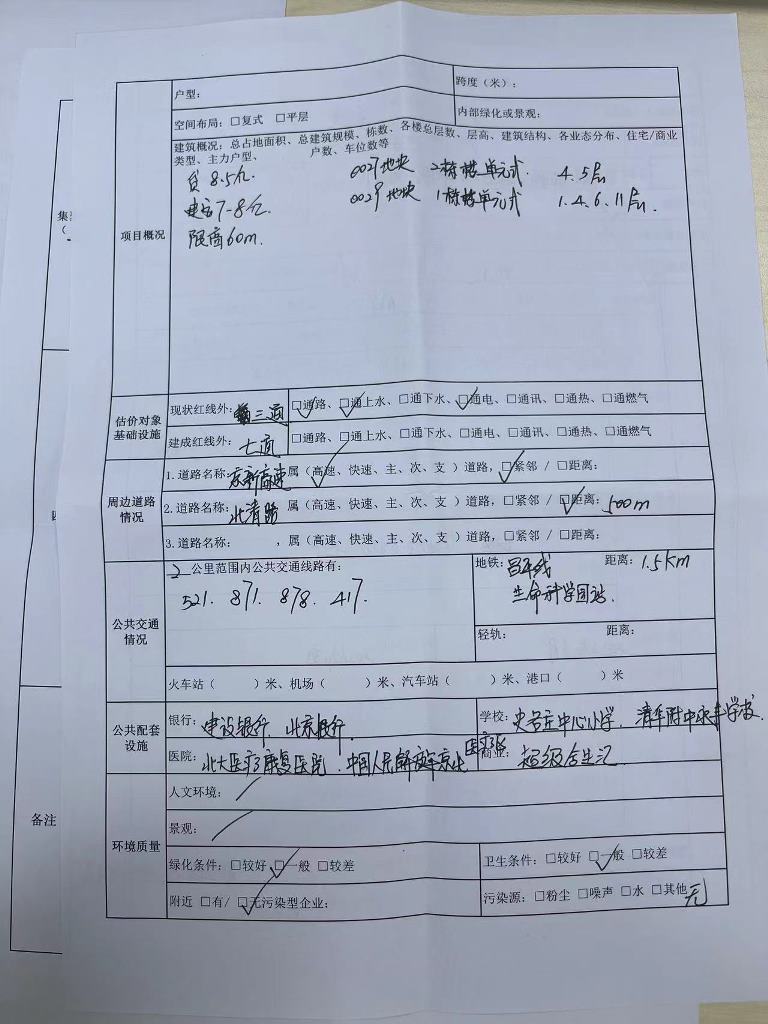 户型:
跨度（米）:
空间布局: □复式 □平层
内部绿化或景观:
项目概况
建筑概况: 总占地面积、总建筑规模、栋数、各楼总层数、层高、建筑结构、各业态分布、住宅/商业
类型、主力户型、 户数、车位数等
贷8.5亿. 0027地块 2栋楼单元式. 4.5层
建安7-8亿. 0029地块 1栋楼单元式 1.4.6.11层.
限高60m.
估价对象
基础设施
现状红线外: 三通 □通路、□通上水、□通下水、□通电、□通讯、□通热、□通燃气
建成红线外: 七通 □通路、□通上水、□通下水、□通电、□通讯、□通热、□通燃气
周边道路
情况
1.道路名称: 京新高速 属（高速、快速、主、次、支 ）道路, □紧邻 / □距离:
2.道路名称: 北清路 属（高速、快速、主、次、支 ）道路, □紧邻 / □距离: 500m
3.道路名称: , 属（高速、快速、主、次、支 ）道路, □紧邻 / □距离:
公共交通
情况
2 公里范围内公共交通线路有:
521. 871. 878. 417.
地铁: 昌平线 距离: 1.5km
生命科学园站.
轻轨: 距离:
火车站（ ）米、机场（ ）米、汽车站（ ）米、港口（ ）米
公共配套
设施
银行: 建设银行、北京银行.
学校: 史各庄中心小学、清华附中永丰学校.
医院: 北大医疗康复医院、中国人民解放军京北医疗区
商业: 超级合生汇
环境质量
人文环境:
景观:
绿化条件: □较好 □一般 □较差
卫生条件: □较好 □一般 □较差
附近 □有/ □无污染型企业:
污染源: □粉尘 □噪声 □水 □其他 无
集
（
四
备注